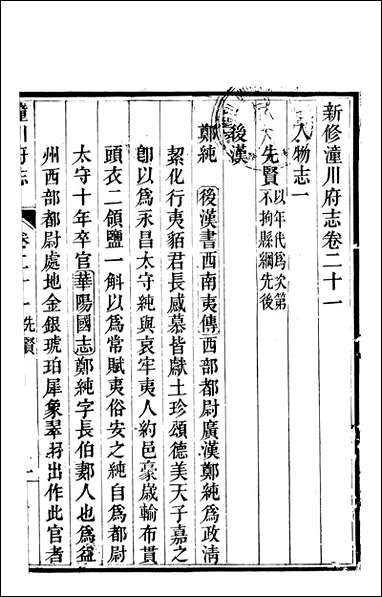 新修潼川府志卷二十一
人物志一
先賢以年代為次第
不拘縣綱先後
後漢
鄭純 後漢書西南夷傳西部都尉廣漢鄭純為政淸
絜化行夷貊君長感慕皆獻土珍頌德美天子嘉之
卽以為永昌太守純與哀牢夷人約邑豪歲輸布貫
頭衣二領鹽一斛以為常賦夷俗安之純自為都尉
太守十年卒官華陽國志鄭純字長伯郪人也為益
州西部都尉處地金銀琥珀犀象翠羽出作此官者
潼川府志
卷二十一 先賢
一